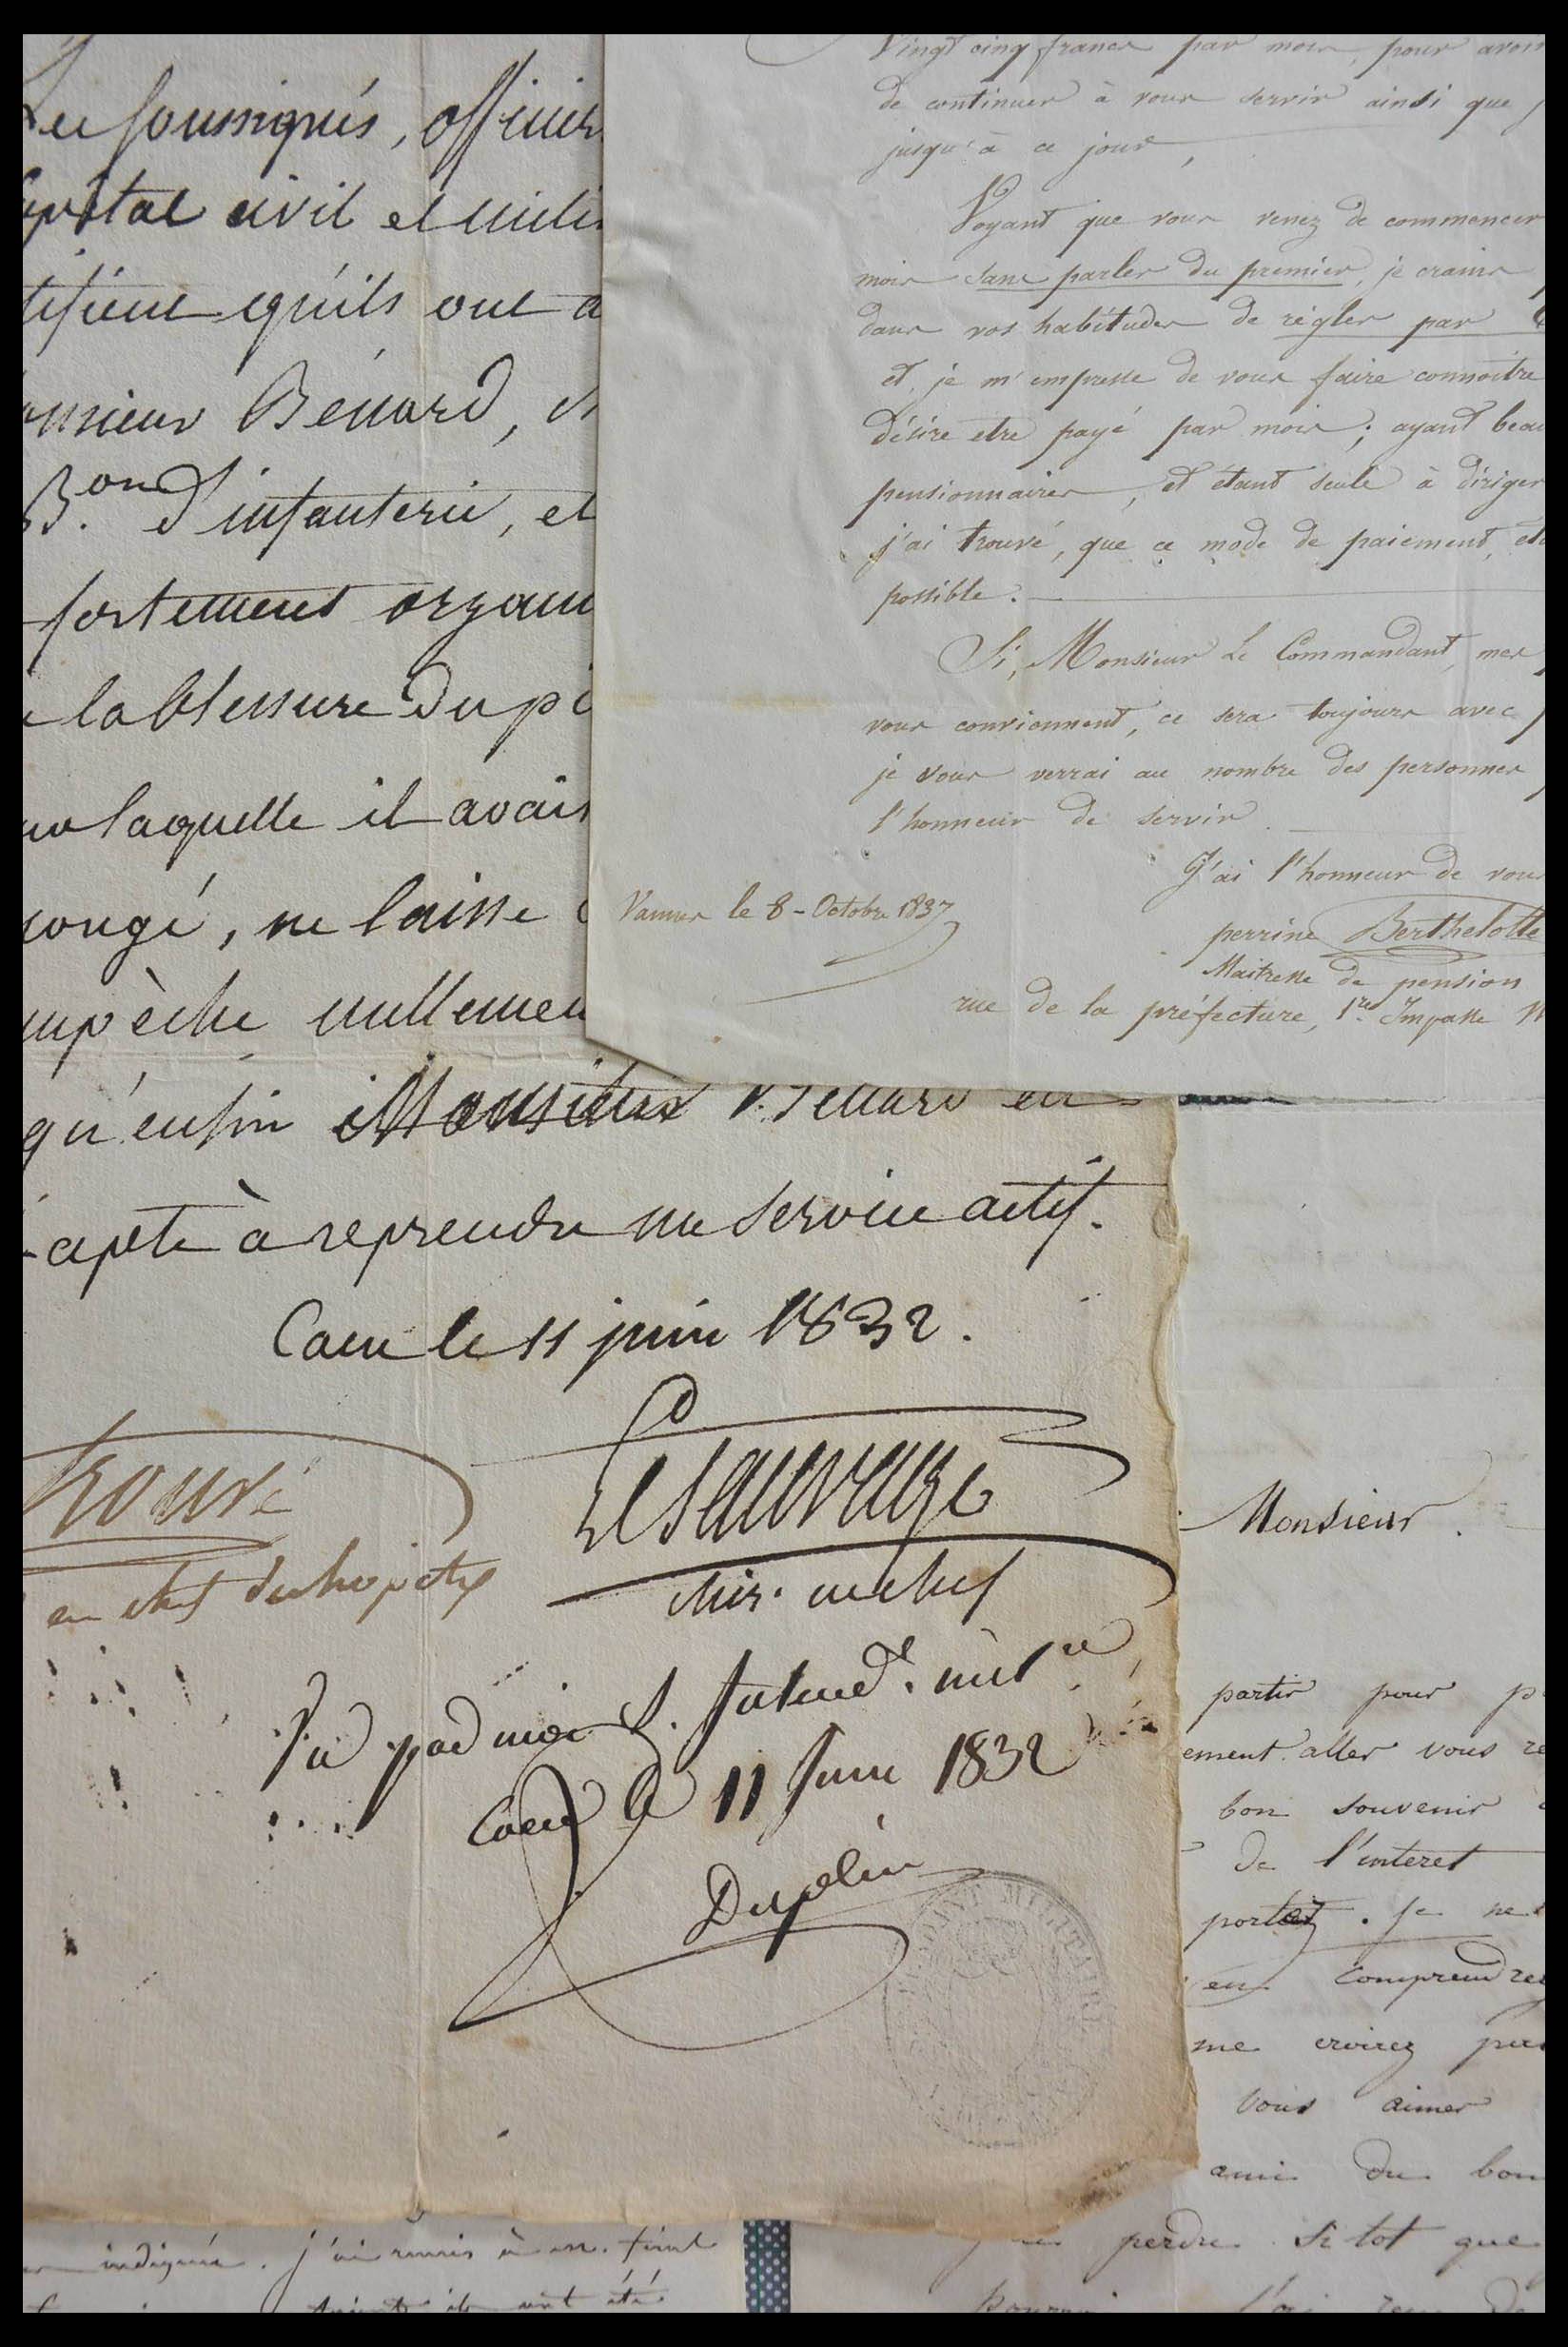 Les soussignés, officiers
hôpital civil et milit
tifient qu'ils ont a
onsieur Bénard, ch
B.on d'infanterie, et
fortement organi
la blessure du pi
laquelle il avait
congé, ne laisse
mpêche nullement
qu'enfin Monsieur Bénard est
apte à reprendre un service actif.
Caen le 11 juin 1832.
Trouvé
en chef des hopitx
Le Sauvage
Chir. en chef
Vu par moi S. Intendt. milre
Caen le 11 Juin 1832
Dupléin
MILITAIRE
Vingt cinq francs par mois, pour avoir
de continuer à vous servir ainsi que j
jusqu'à ce jour,
Voyant que vous venez de commencer
mois sans parler du premier, je crains
dans vos habitudes de régler par
et je m'empresse de vous faire connoitre
désire etre payé par mois ; ayant beau
pensionnaires, et étant seule à diriger
j'ai trouvé, que ce mode de paiement, éta
possible.
Si, Monsieur Le Commandant, mes
vous conviennent, ce sera toujours avec p
je vous verrai au nombre des personnes
l'honneur de servir.
J'ai l'honneur de vous
Vannes le 8 - Octobre 1837
perrine Berthelotte
Maitresse de pension
rue de la préfecture, 1re Impasse N
Monsieur.
partir pour p
ement aller vous re
bon souvenir
de l'interet
portez. Je ne
en comprendre
me croirez pas
vous aimer
ami du bon
perdre si tot que
indiquée. j'ai remis à un
ont été